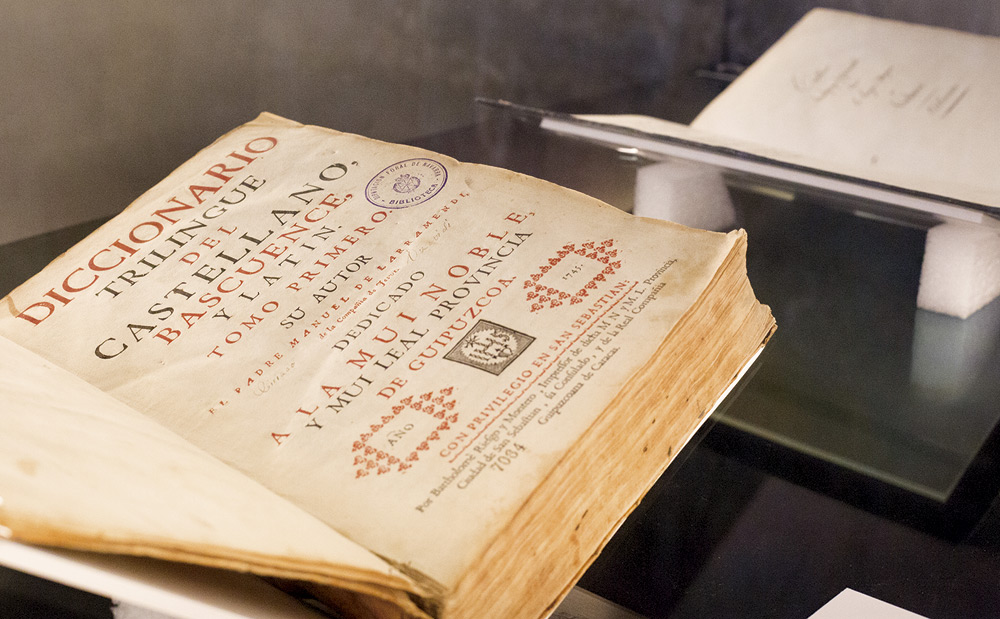 DICCIONARIO
TRILINGUE
DEL
CASTELLANO,
BASCUENCE,
Y LATIN.
TOMO PRIMERO.
SU AUTOR
EL PADRE MANUEL DE LARRAMENDI,
de la Compañia de Jesus.
DEDICADO
A LA MUI NOBLE,
Y MUI LEAL PROVINCIA
DE GUIPUZCOA.
AÑO
1745.
CON PRIVILEGIO EN SAN SEBASTIAN,
Por Bartholomè Riesgo y Montero, Impressor de dicha M.N. y M.L. Provincia,
Ciudad de San Sebastian, su Consulado, y de la Real Compañia
Guipuzcoana de Caracas.
7084
DIPUTACION FORAL DE NAVARRA
BIBLIOTECA